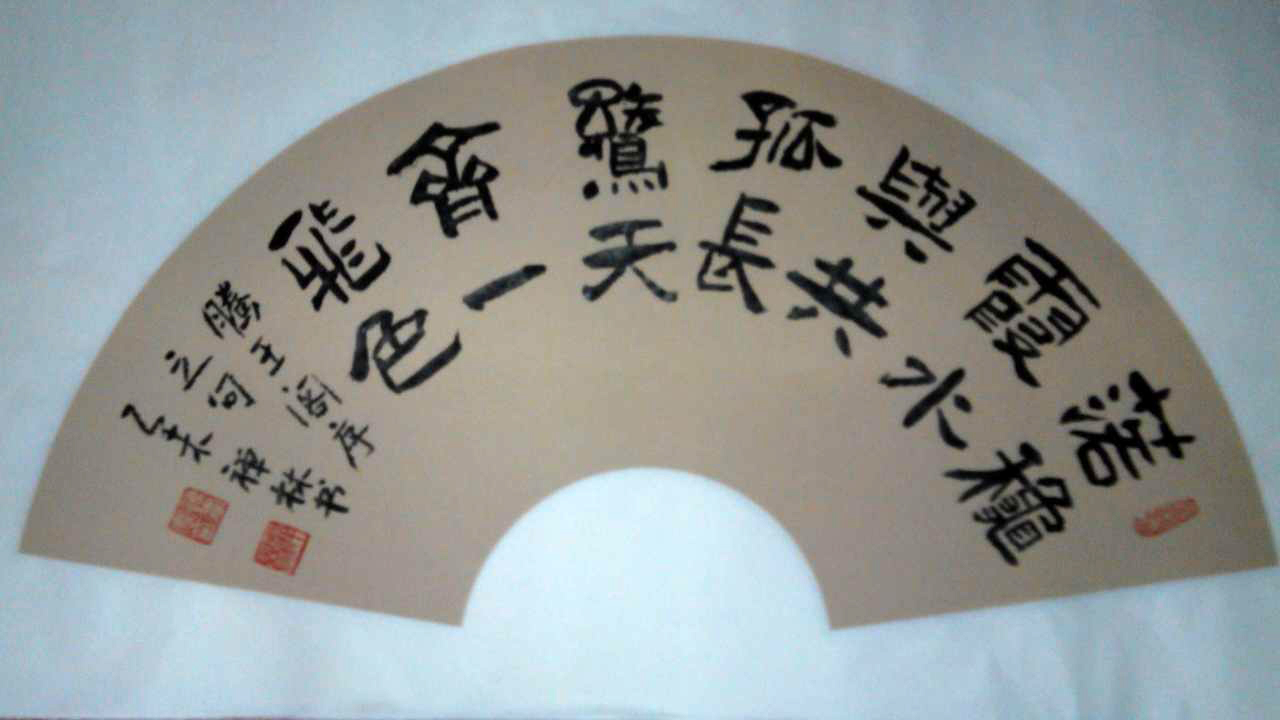 落霞與孤鶩齊飛
穐水共長天一色
滕王阁序
之句
乙未禅林书